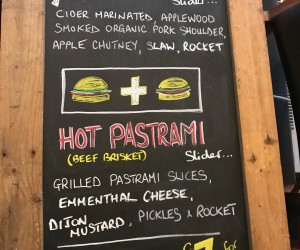 Slider...
CIDER MARINATED, APPLEWOOD
SMOKED ORGANIC PORK SHOULDER,
APPLE CHUTNEY, SLAW, ROCKET
+
HOT PASTRAMI
(BEEF BRISKET) Slider...
GRILLED PASTRAMI SLICES,
EMMENTHAL CHEESE,
DIJON MUSTARD, PICKLES & ROCKET
for